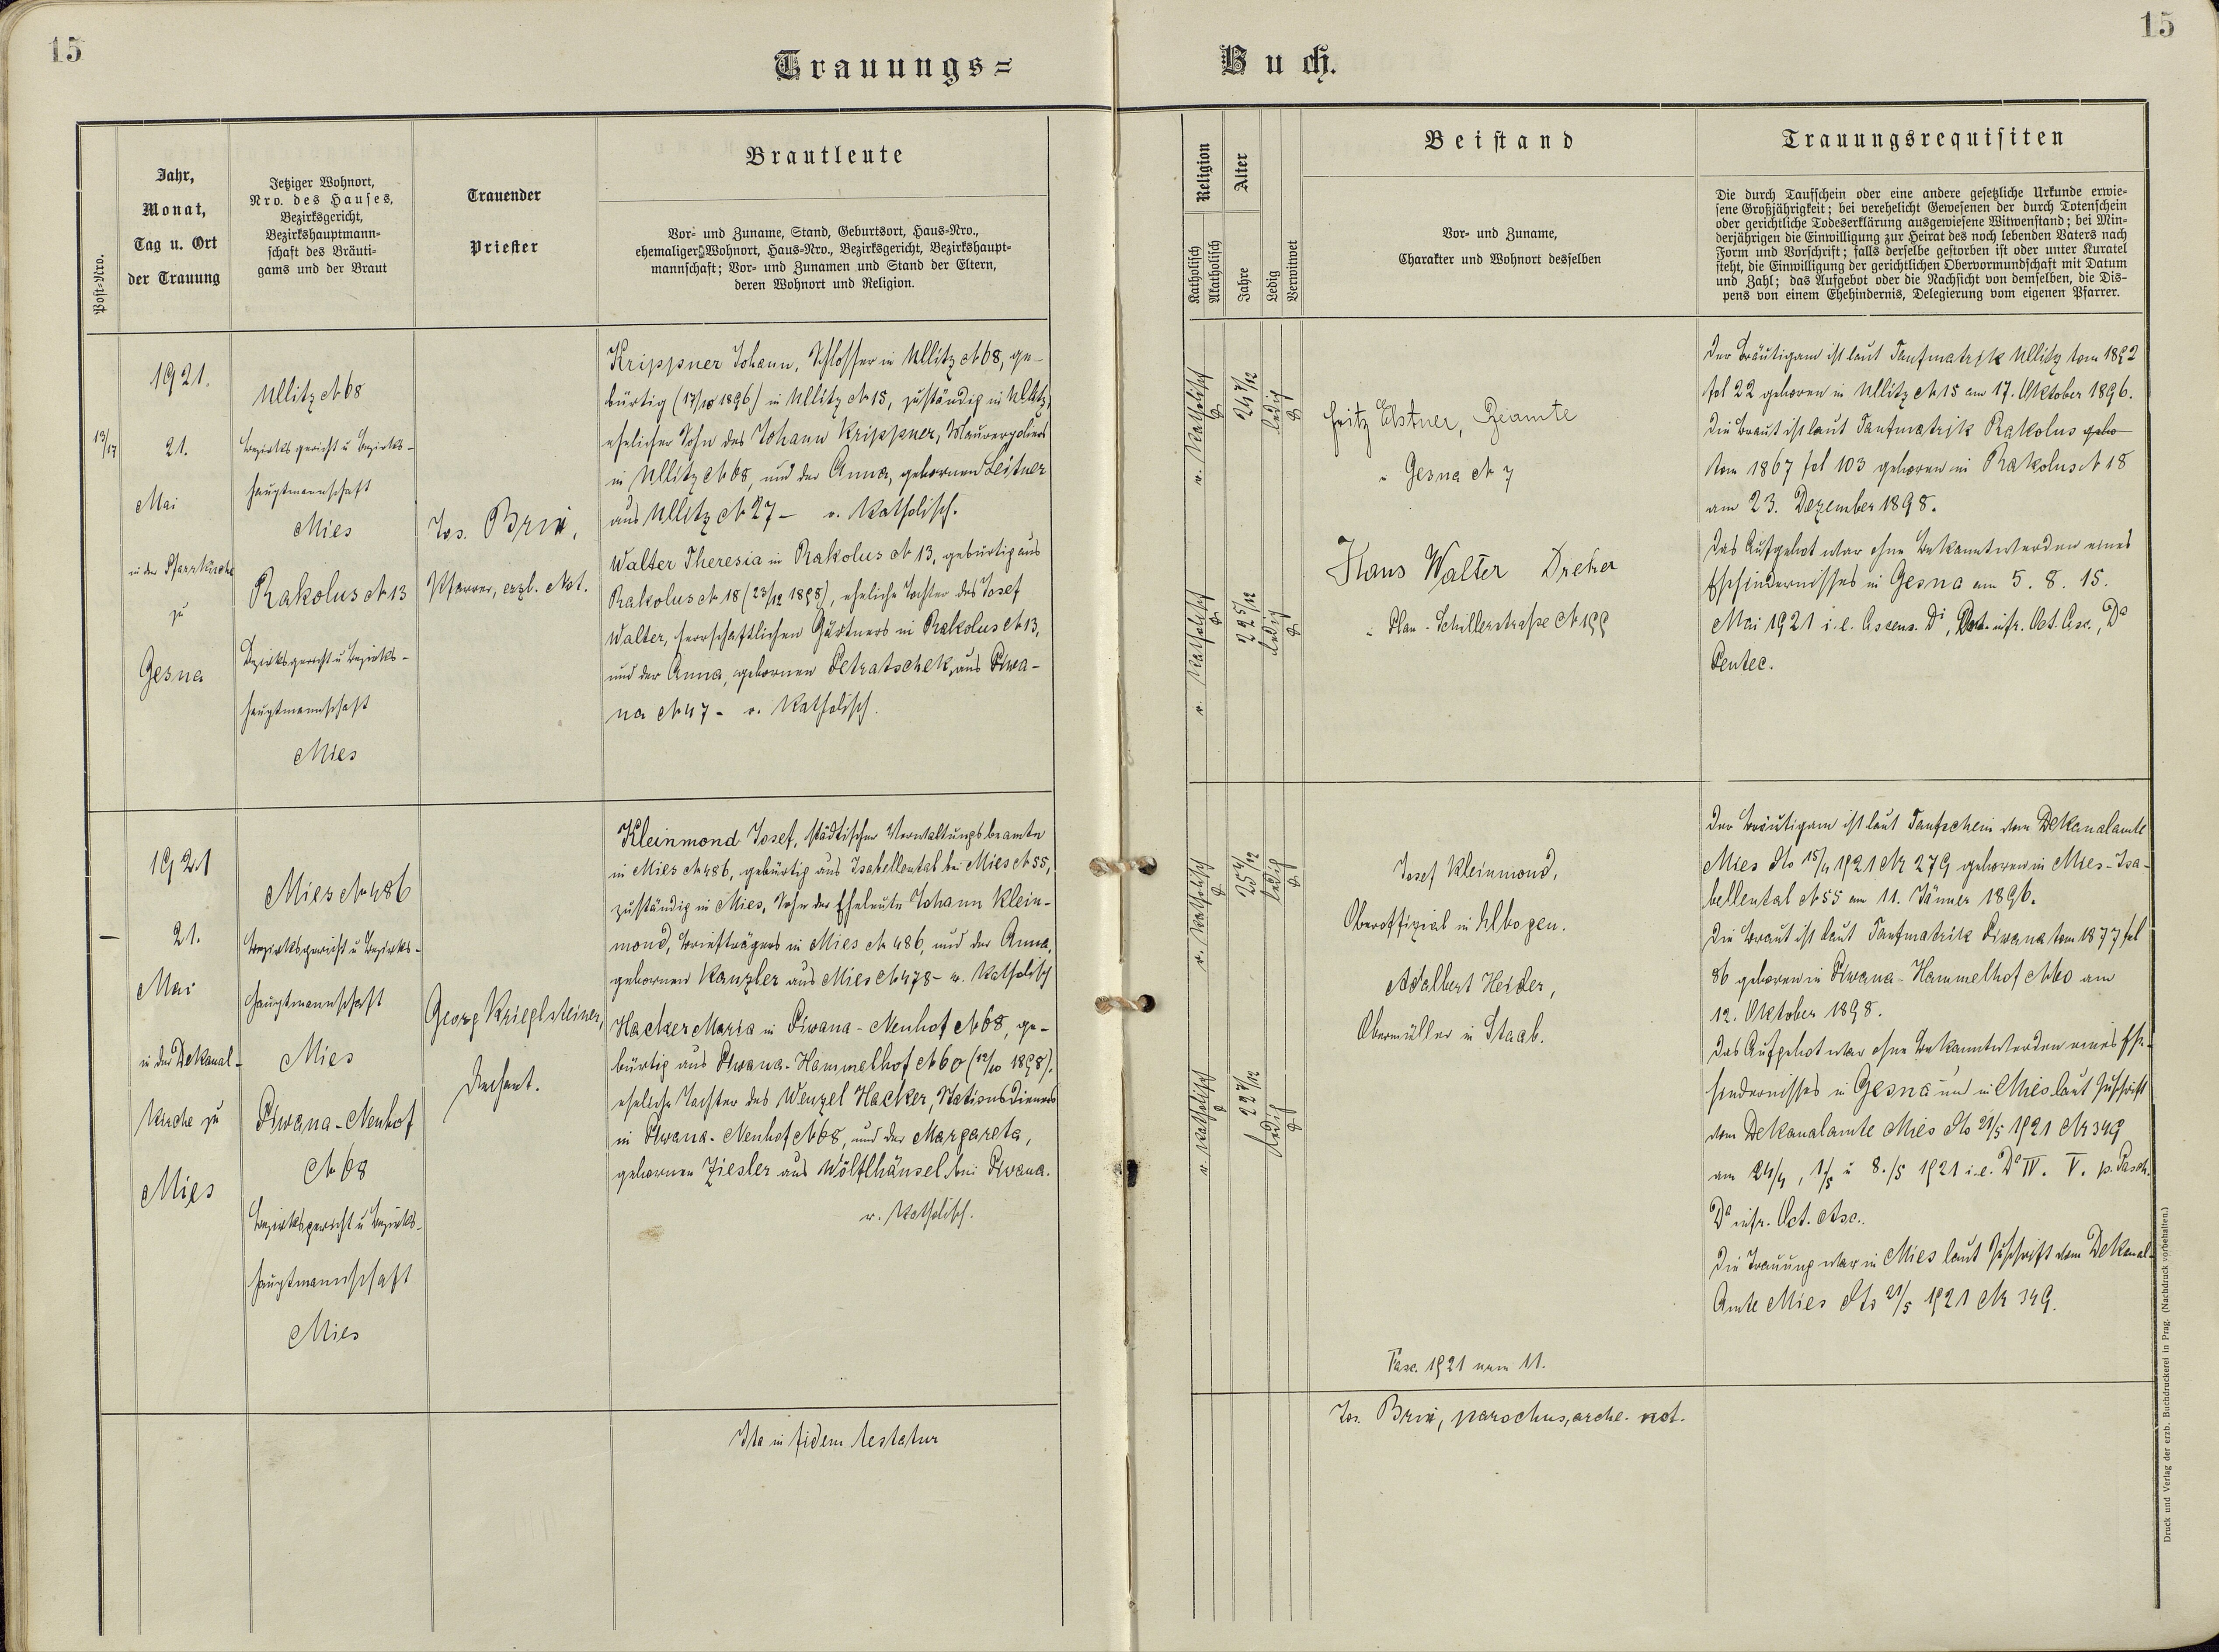 15
15
Trauungs=
Buch.
Post=Nro.
Jahr,
Monat,
Tag u. Ort
der Trauung
Jetziger Wohnort,
Nro. des Hauses,
Bezirksgericht,
Bezirkshauptmann=
schaft des Bräuti=
gams und der Braut
Trauender
Priester
Brautleute
Vor= und Zuname, Stand, Geburtsort, Haus=Nro.,
ehemaliger Wohnort, Haus=Nro., Bezirksgericht, Bezirkshaupt=
mannschaft; Vor= und Zunamen und Stand der Eltern,
deren Wohnort und Religion.
Religion
Katholisch
Akatholisch
Alter
Jahre
Ledig
Verwitwet
Beistand
Vor= und Zuname,
Charakter und Wohnort desselben
Trauungsrequisiten
Die durch Taufschein oder eine andere gesetzliche Urkunde erwie=
sene Großjährigkeit; bei verehelicht Gewesenen der durch Totenschein
oder gerichtliche Todeserklärung ausgewiesene Witwenstand; bei Min=
derjährigen die Einwilligung zur Heirat des noch lebenden Vaters nach
Form und Vorschrift; falls derselbe gestorben ist oder unter Kuratel
steht, die Einwilligung der gerichtlichen Obervormundschaft mit Datum
und Zahl; das Aufgebot oder die Nachsicht von demselben, die Dis=
pens von einem Ehehindernis, Delegierung vom eigenen Pfarrer.
13/17
1921.
21.
Mai
in der Pfarrkirche
zu
Gesna
Ullitz N 68
Bezirksgericht u Bezirks-
hauptmannschaft
Mies
Rakolus N 13
Bezirksgericht u Bezirks-
hauptmannschaft
Mies
Jos. Brix,
Pfarrer, erzb. Not.
Krippner Johann, Schlosser in Ullitz N 68, ge-
bürtig (17/10 1896) in Ullitz N 15, zuständig in Ullitz,
ehelicher Sohn des Johann Krippner, Maurerpoliers
in Ullitz N 68, und der Anna, gebornen Leitner
aus Ullitz N 27 - r. Katholisch.
Walter Theresia in Rakolus N 13, gebürtig aus
Rakolus N 18 (23/12 1898), eheliche Tochter des Josef
Walter, herrschaftlichen Gärtners in Rakolus N 13,
und der Anna, gebornen Petratschek, aus Piwa-
na N 47 - r. Katholisch.
r. Katholisch
24 7/12
ledig
r. Katholisch
22 5/12
ledig
Fritz Elstner, Beamte
Gesna N 7
Hans Walter Dreher
Plan - Schillerstraße N 199
Der Bräutigam ist laut Taufmatrik Ullitz tom 1892
fol 22 geboren in Ullitz N 15 am 17. Oktober 1896.
Die Braut ist laut Taufmatrik Rakolus gebo
tom 1867 fol 103 geboren in Rakolus N 18
am 23. Dezember 1898.
Das Aufgebot war ohne Bekanntwerden eines
Ehehindernisses in Gesna am 5. 8. 15.
Mai 1921 i. e. Ascens. Di, infr. Oct. Asc., Da
Pentec.
-
1921
21.
Mai
in der Dekanal-
Kirche zu
Mies
Mies N 486
Bezirksgericht u Bezirks-
hauptmannschaft
Mies
Piwana-Neuhof
N 68
Bezirksgericht u Bezirks-
hauptmannschaft
Mies
Georg Krieglsteiner,
Dechant.
Kleinmond Josef, städtischer Verwaltungsbeamte
in Mies N 486, gebürtig aus Isabellental bei Mies N 55,
zuständig in Mies, Sohn der Eheleute Johann Klein-
mond, Briefträgers in Mies N 486, und der Anna,
gebornen Kanzler aus Mies N 478 - r. Katholisch
Hacker Maria in Piwana-Neuhof N 68, ge-
bürtig aus Piwana-Hammelhof N 60 (12/10 1898),
eheliche Tochter des Wenzel Hacker, Stationsdieners
in Piwana-Neuhof N 68, und der Margareta,
gebornen Ziesler aus Wölflhäusel bei Piwana.
r. Katholisch.
r. Katholisch
25 4/12
ledig
r. Katholisch
22 7/12
ledig
Josef Kleinmond,
Oberoffizial in Elbogen.
Adalbert Heider,
Obermüller in Staab.
Fasc. 1921 num 11.
Der Bräutigam ist laut Taufschein vom Dekanalamte
Mies dto 15/4 1921 N 279 geboren in Mies-Isa-
bellental N 55 am 11. Jänner 1896.
Die Braut ist laut Taufmatrik Piwana tom 1877 fol
86 geboren in Piwana-Hammelhof N 60 am
12. Oktober 1898.
Das Aufgebot war ohne Bekanntwerden eines Ehe-
hindernisses in Gesna und in Mies laut Zuschrift
vom Dekanalamte Mies dto 21/5 1921 N 349
am 24/4, 1/5 u 8./5 1921 i. e. Da IV. V. p. Pasch.
Da infr. Oct. Asc..
Die Trauung war in Mies laut Zuschrift vom Dekanal-
Amte Mies dto 21/5 1921 N 349.
Ita in fidem testatur
Jos. Brix, parochus, arche. not.
Druck und Verlag der erzb. Buchdruckerei in Prag. (Nachdruck vorbehalten.)